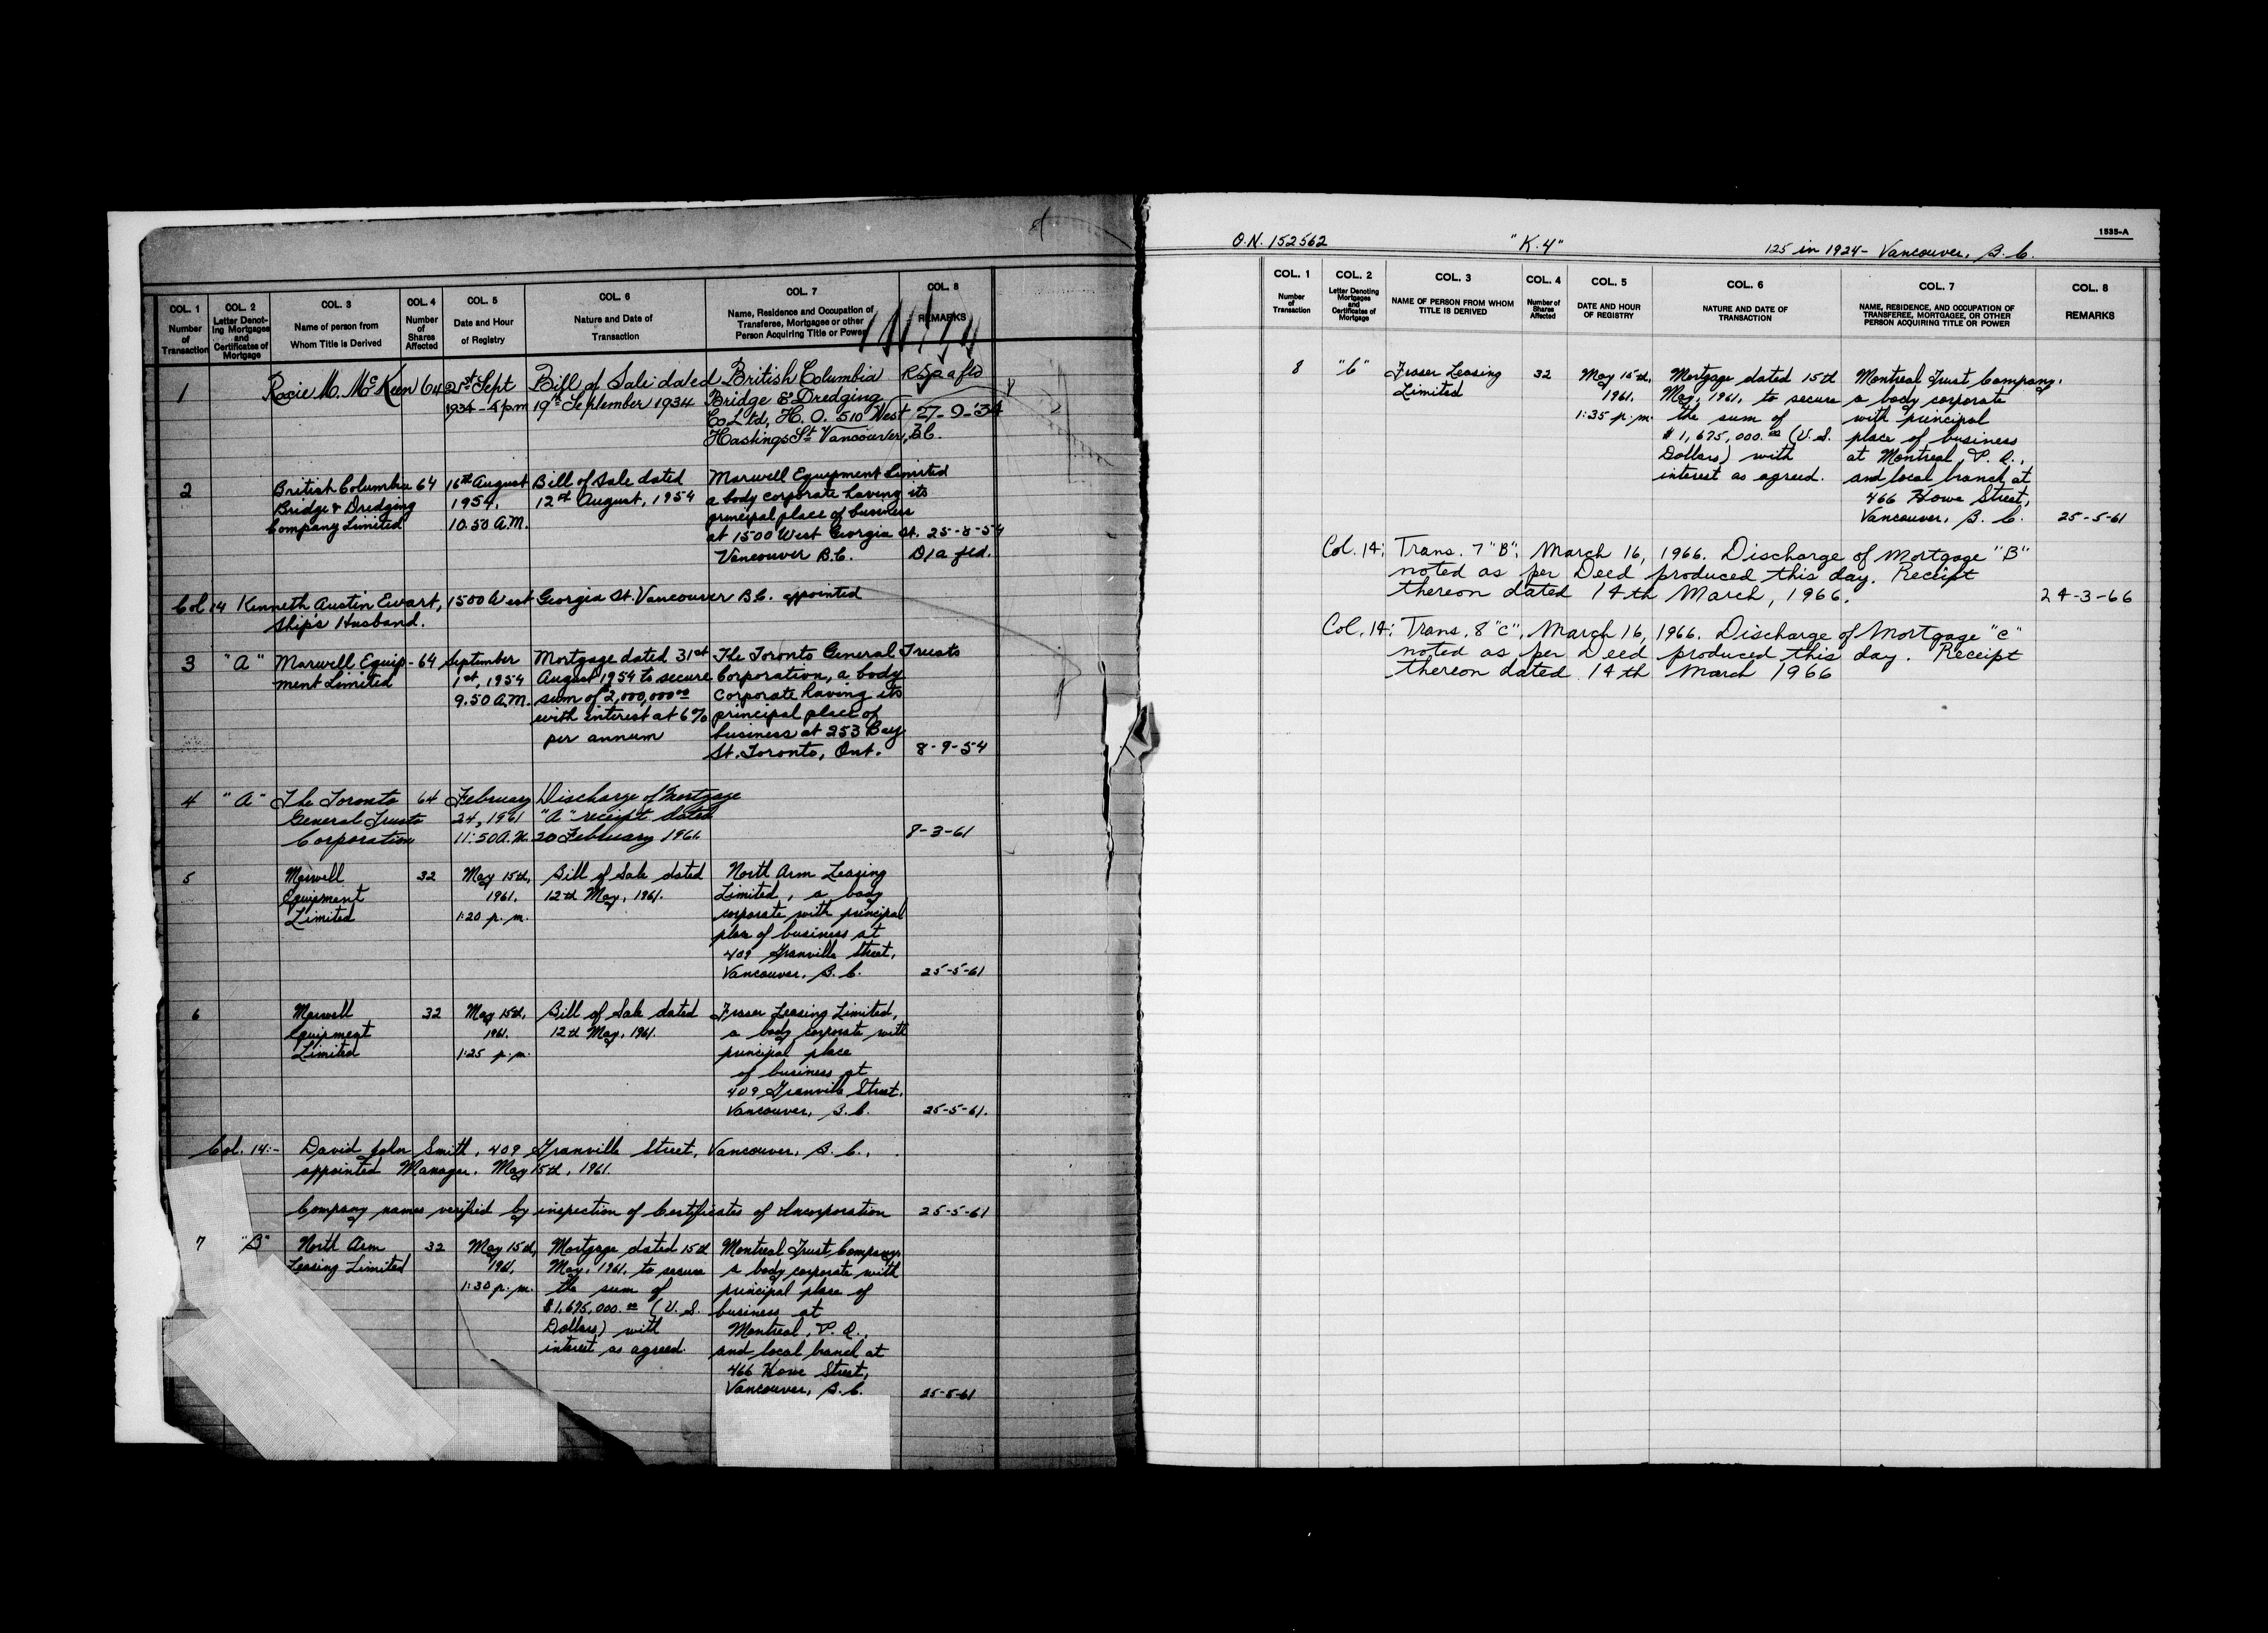 COL. 1 COL. 2 COL. 3 COL. 4 COL. 5 COL. 6 COL. 7 COL. 8
Number of Transaction
Letter Denot-
ing Mortgages
and
Certificates of
Mortgage
Name of person from
Whom Title is Derived
Number of Shares Affected
Date and Hour
of Registry
Nature and Date of
Transaction
Name, Residence and Occupation of
Transferee, Mortgagee or other
Person Acquiring Title or Power
REMARKS
1 Roxie M. McKeen 64 21st Sept Bill of Sale dated British Columbia
1934 - 4 pm 19th September 1934 Bridge & Dredging
Co Ltd, H.O. 510 West 27-9-'34
Hastings St Vancouver, B.C.
2 British Columbia 64 16th August Bill of Sale dated Marwell Equipment Limited
Bridge & Dredging 1954. 12th August, 1954 a body corporate having its
Company Limited 10.50 A.M. principal place of business
at 1500 West Georgia St. 25-8-54
Vancouver B.C. D/a fld.
Col 14 Kenneth Austin Ewart, 1500 West Georgia St. Vancouver B.C. appointed
Ship's Husband.
3 "A" Marwell Equip- 64 September Mortgage dated 31st The Toronto General Trusts
ment Limited 1st, 1954 August 1954 to secure Corporation, a body
9.50 A.M. sum of 2,000,000.00 corporate having its
with interest at 6% principal place of
per annum business at 253 Bay
St. Toronto, Ont. 8-9-54
4 "A" The Toronto 64 February Discharge of Mortgage
General Trusts 24, 1961 "A" receipt dated
Corporation 11:50 A.M. 20 February 1961 8-3-61
5 Marwell 32 May 15th, Bill of Sale dated North Arm Leasing
Equipment 1961. 12th May, 1961. Limited, a body
Limited 1:20 p.m. corporate with principal
place of business at
409 Granville Street,
Vancouver, B.C. 25-5-61
6 Marwell 32 May 15th, Bill of Sale dated Fraser Leasing Limited,
Equipment 1961. 12th May, 1961. a body corporate with
Limited 1:25 p.m. principal place
of business at
409 Granville Street.
Vancouver, B.C. 25-5-61.
Col. 14:- David John Smith, 409 Granville Street, Vancouver, B.C.,
appointed Manager. May 15th, 1961.
Company names verified by inspection of Certificates of Incorporation 25-5-61
7 "B" North Arm 32 May 15th, Mortgage dated 15th Montreal Trust Company,
Leasing Limited 1961. May, 1961, to secure a body corporate with
1:30 p.m. the sum of principal place of
$1,675,000.00 (U.S. business at
Dollars) with Montreal, P.Q.,
interest as agreed. and local branch at
466 Howe Street,
Vancouver, B.C. 25-5-61
1535-A
O.N. 152562 "K.4" 125 in 1924 - Vancouver, B.C.
COL. 1 COL. 2 COL. 3 COL. 4 COL. 5 COL. 6 COL. 7 COL. 8
Number of Transaction
Letter Denoting
Mortgages
and
Certificates of
Mortgage
NAME OF PERSON FROM WHOM
TITLE IS DERIVED
Number of Shares Affected
DATE AND HOUR
OF REGISTRY
NATURE AND DATE OF
TRANSACTION
NAME, RESIDENCE, AND OCCUPATION OF
TRANSFEREE, MORTGAGEE, OR OTHER
PERSON ACQUIRING TITLE OR POWER
REMARKS
8 "C" Fraser Leasing 32 May 15th, Mortgage dated 15th Montreal Trust Company,
Limited 1961. May, 1961, to secure a body corporate
1:35 p.m. the sum of with principal
$1,675,000.00 (U.S. place of business
Dollars) with at Montreal, P.Q.,
interest as agreed. and local branch at
466 Howe Street,
Vancouver, B.C. 25-5-61
Col. 14: Trans. 7 "B", March 16, 1966. Discharge of Mortgage "B"
noted as per Deed produced this day. Receipt
thereon dated 14th March, 1966. 24-3-66
Col. 14: Trans. 8 "C", March 16, 1966. Discharge of Mortgage "C"
noted as per Deed produced this day. Receipt
thereon dated 14th March 1966